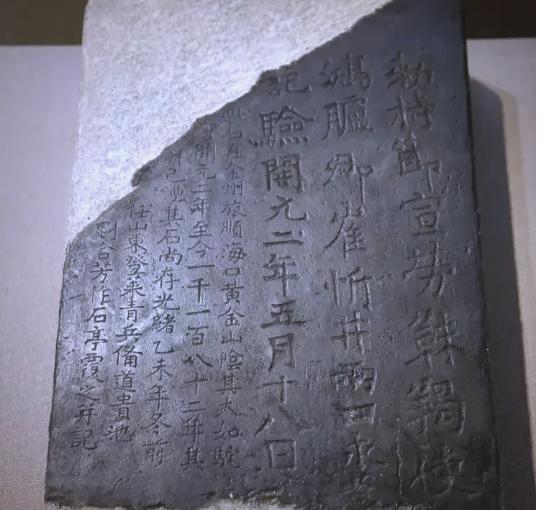 勅持節宣勞靺羯使
鴻臚卿崔忻井兩口永爲
記驗開元二年五月十八日
此石在金州旅順海口黃金山陰其大如駝
開元二年至今一千一百八十二年其
井已湮其石尚存光緒乙未年冬前
任山東登萊青兵備道貴池
劉含芳作石亭覆之并記